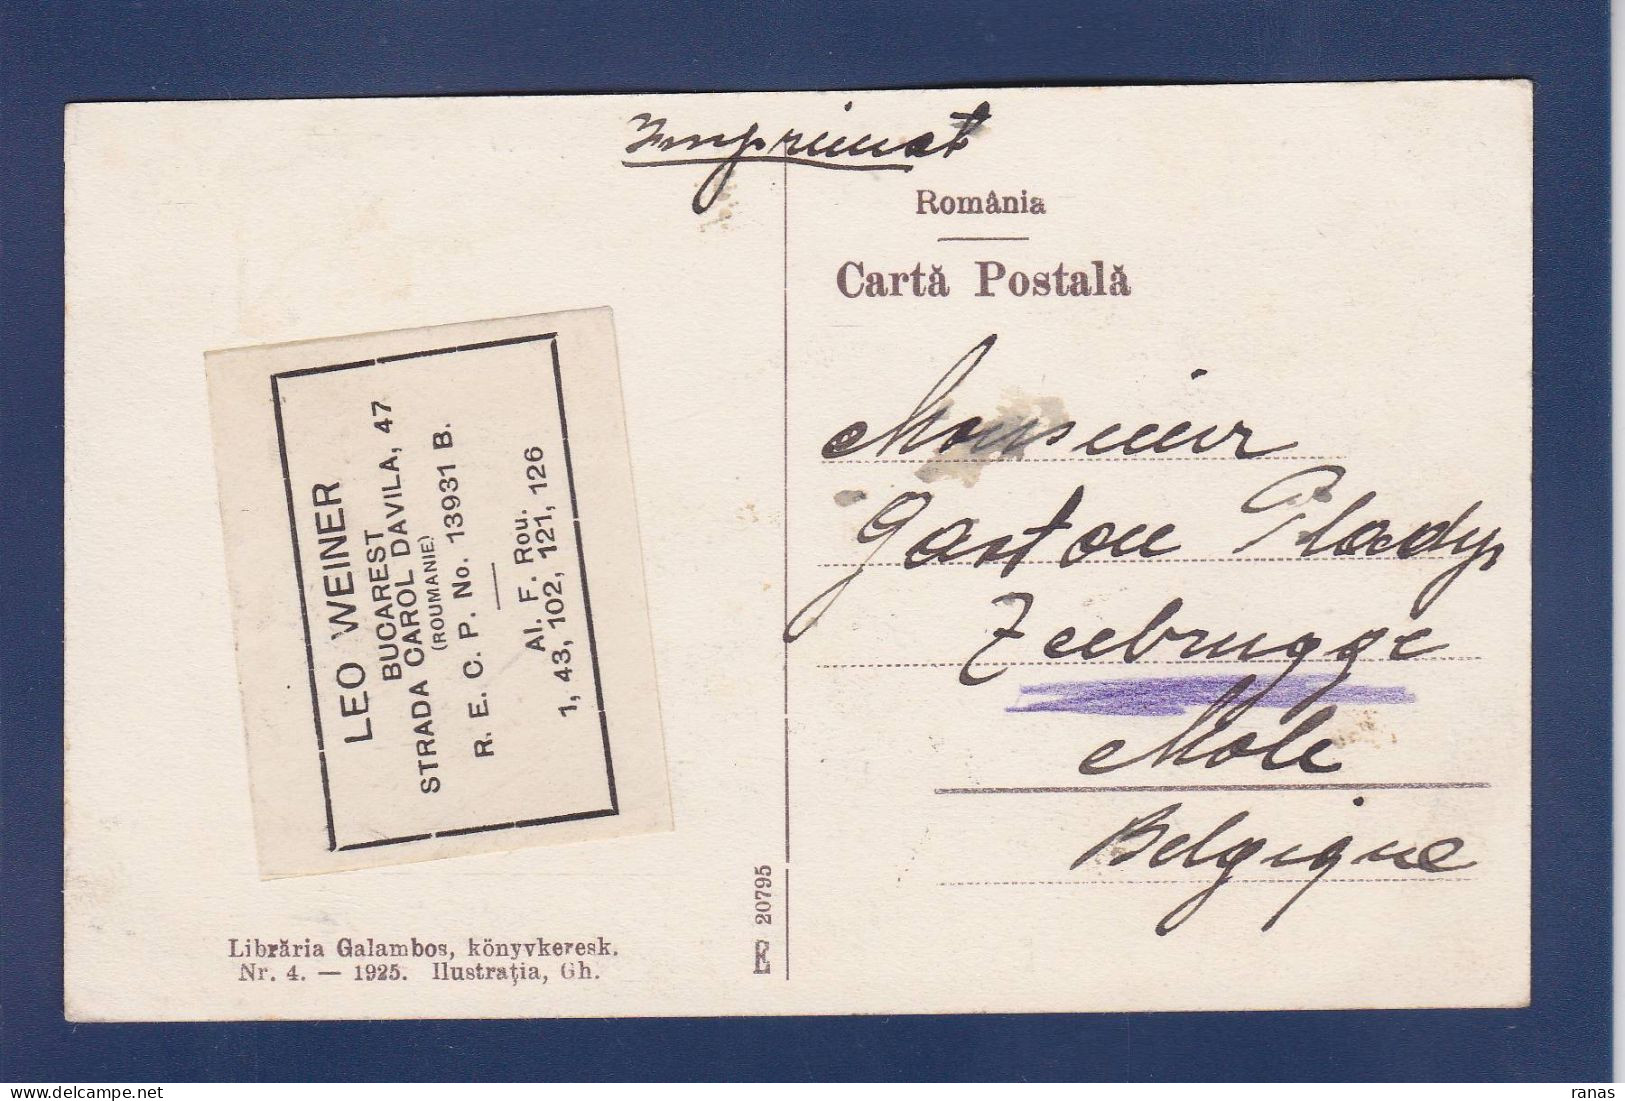 Imprimat
România
Cartă Postală
LEO WEINER
BUCAREST
STRADA CAROL DAVILA, 47
(ROUMANIE)
R. E. C. P. No. 13931 B.
Al. F. Rou.
1, 43, 102, 121, 126
Monsieur
Gaston
Zeebrugge
Mole
Belgique
E 20795
Librăria Galambos, könyvkeresk.
Nr. 4. — 1925. Ilustrația, Gh.
ranas